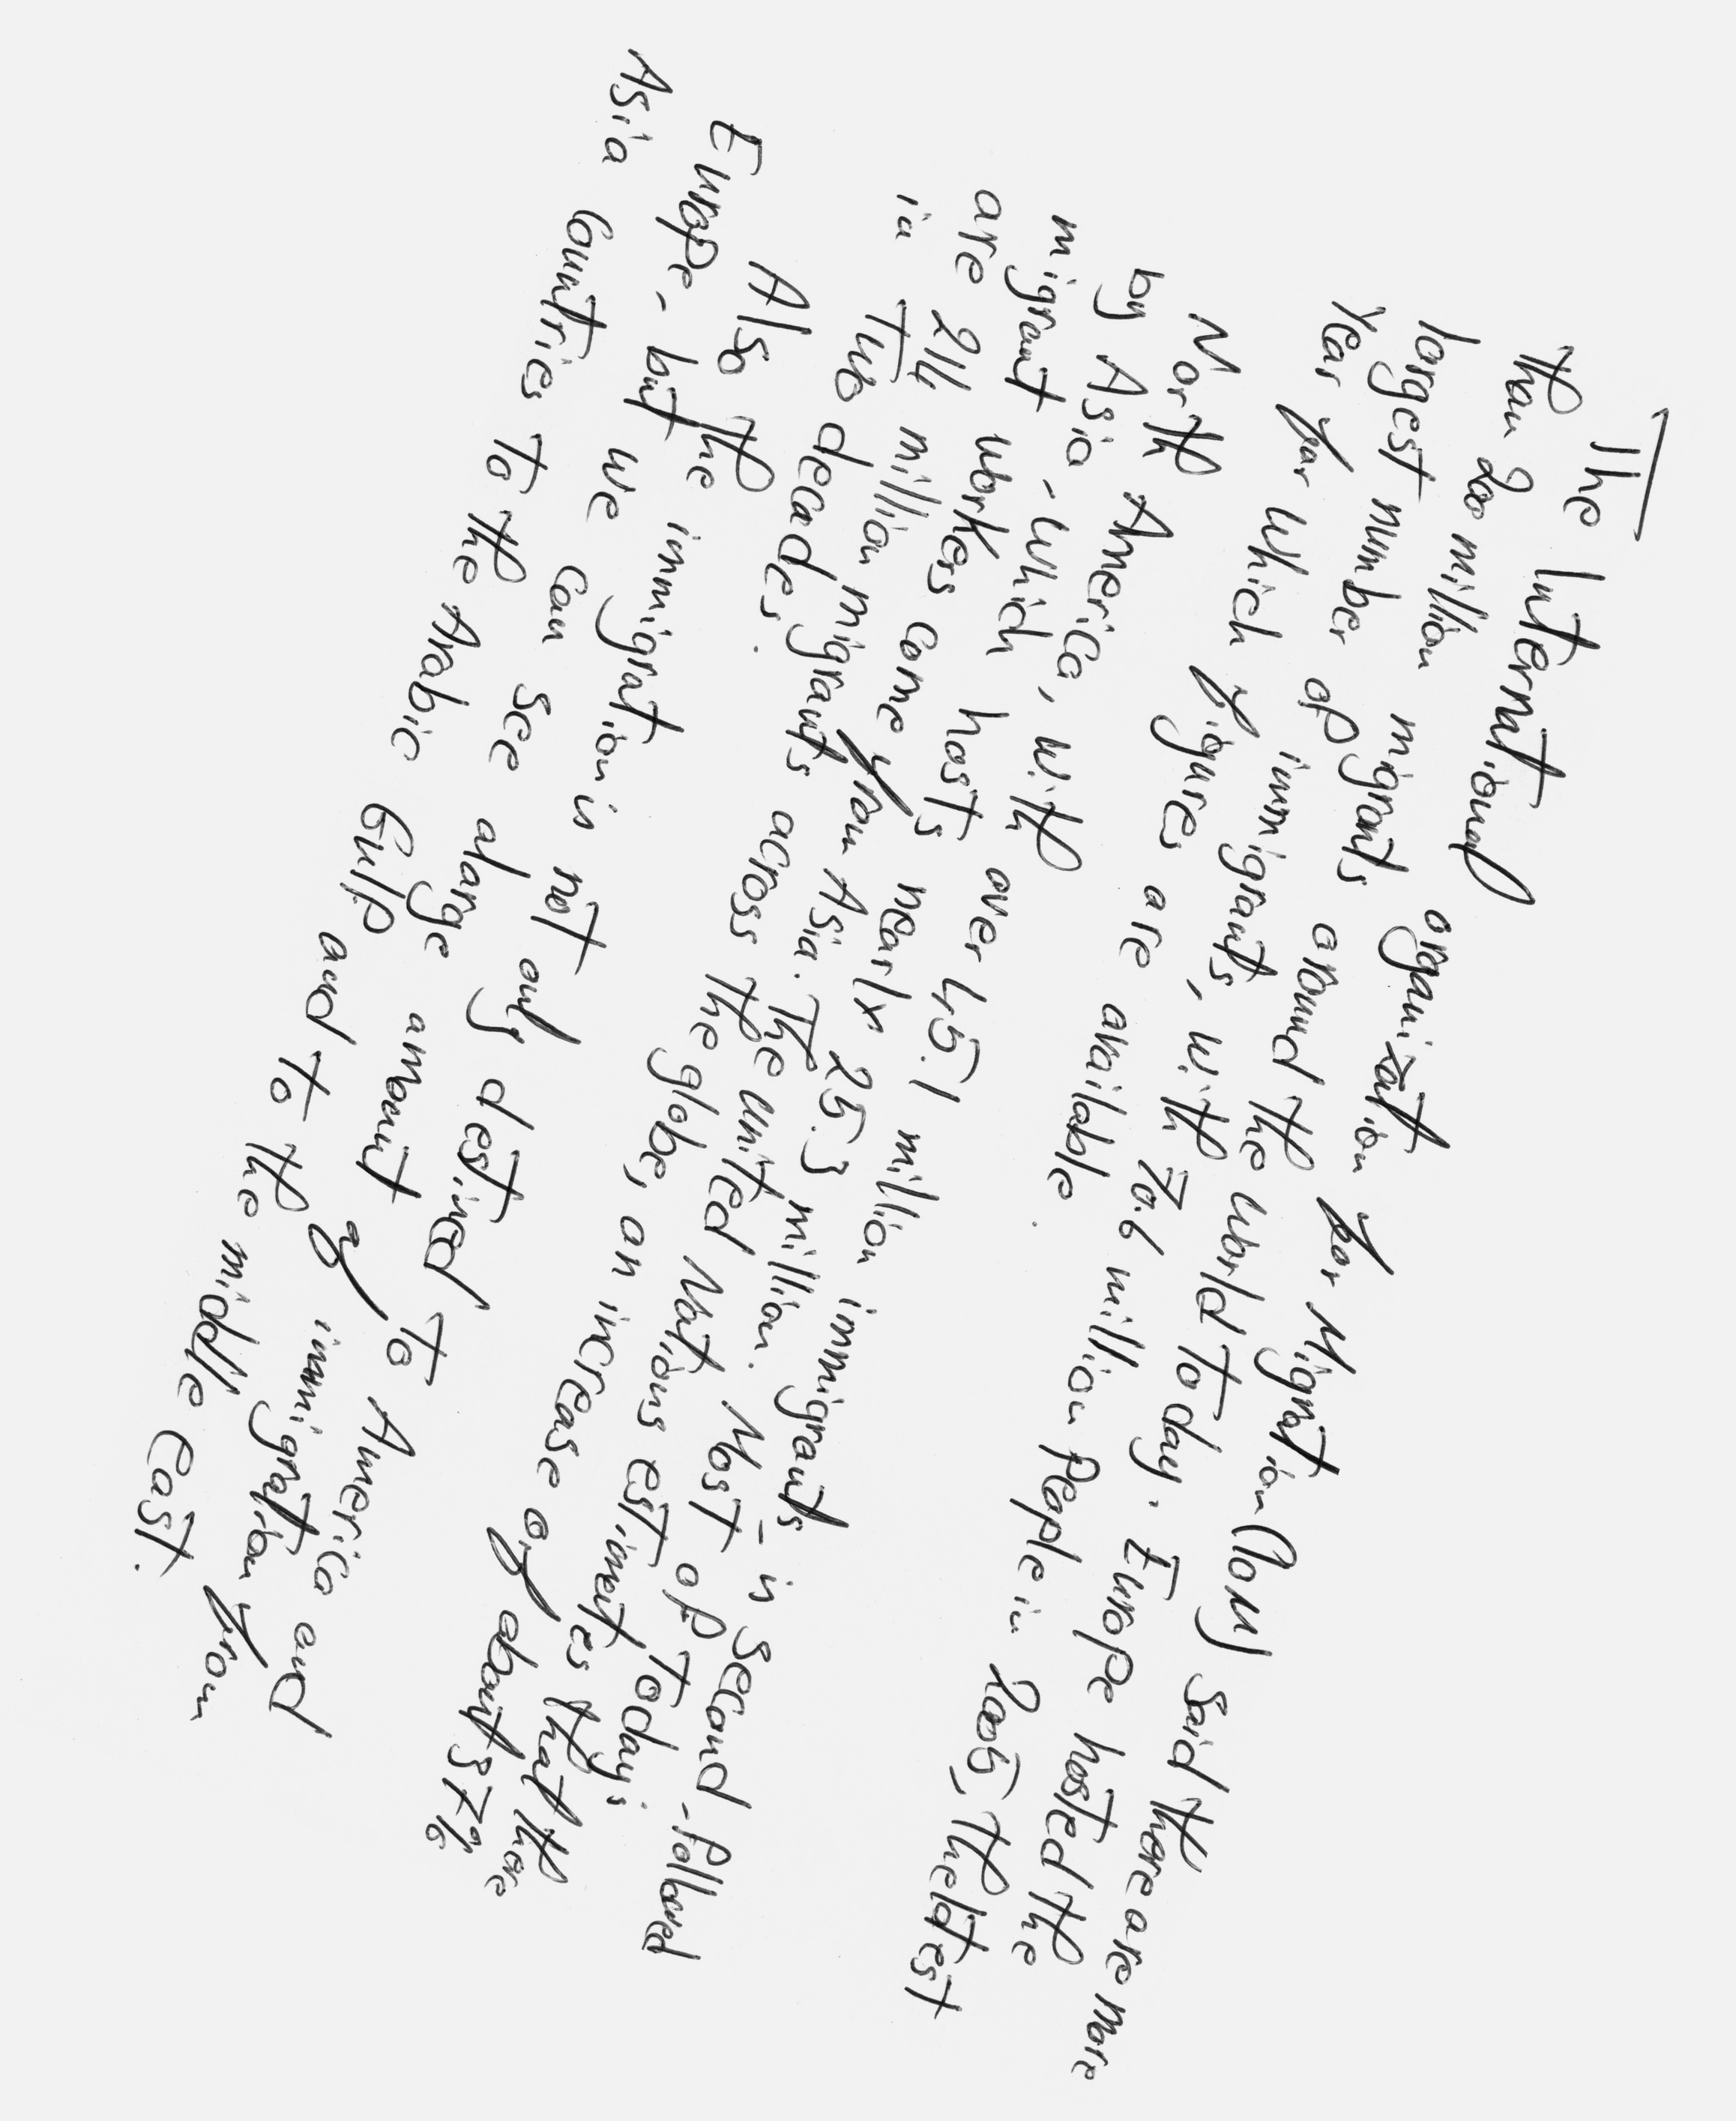 The International organization for Migration (IOM) said there are more
than 200 million migrants around the world today. Europe hosted the
largest number of immigrants, with 70.6 million people in 2005, the latest
year for which figures are available.
North America, with over 45.1 million immigrants - is second - followed
by Asia - which hosts nearly 25.3 million. Most of today's
migrant workers come from Asia. The united Nations estimates that there
are 214 million migrants across the globe, an increase of about 37%
in two decades.
Also the immigration is not only destined to America and
Europe - but we can see a large amount of immigration from
Asia countries to the Arabic Gulf and to the middle East.